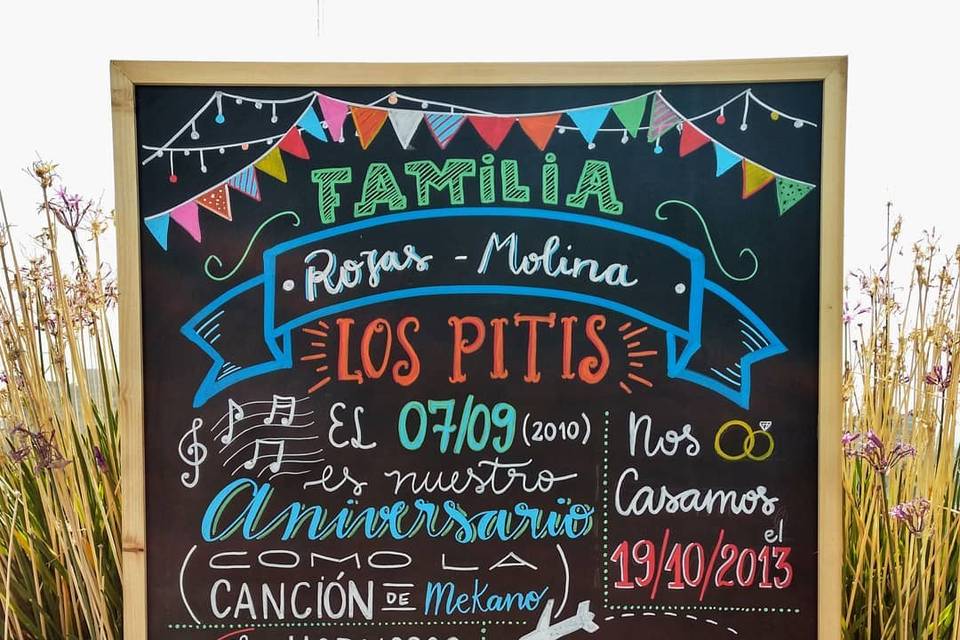 FAMiLiA
Rojas - Molina
LOS PITIS
EL 07/09 (2010)
es nuestro
Aniversario
(COMO LA
CANCIÓN DE Mekano)
Nos
Casamos
el
19/10/2013